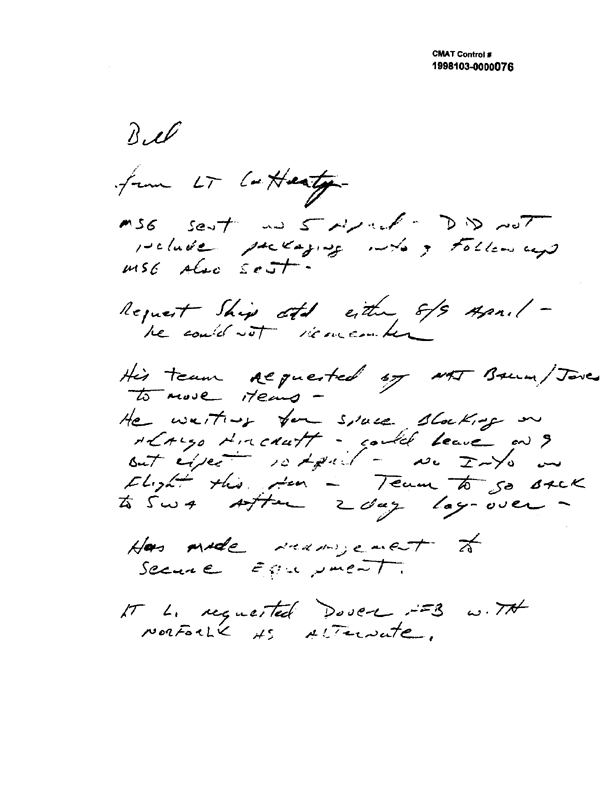 CMAT Control #
1998103-0000076
Bill
from LT
MSG sent on 5 April - DID not
include packaging info & Follow up
MSG also sent -
Request Ship either 8/9 April -
he could not remember
His team Requested by MAJ Baum/Jones
to move items -
He waiting for Space Blocking on
Aircraft - could leave on 9
But expect 10 April - No Info on
Flight this Am - Team to go BACK
to SWA After 2 day lay-over -
Has made arrangement to
Secure Equipment.
LT L. requested Dover AFB WITH
NORFORLK AS ALTernate.